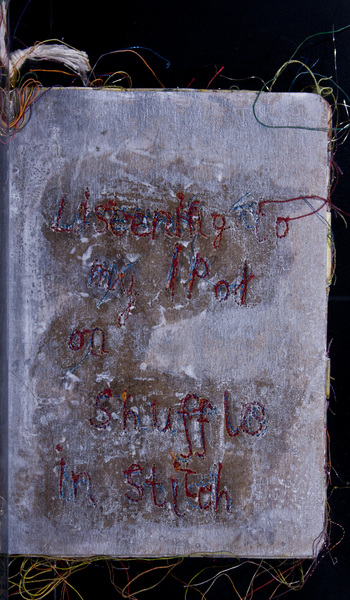 Listening To
my iPod
on
Shuffle
in Stitch